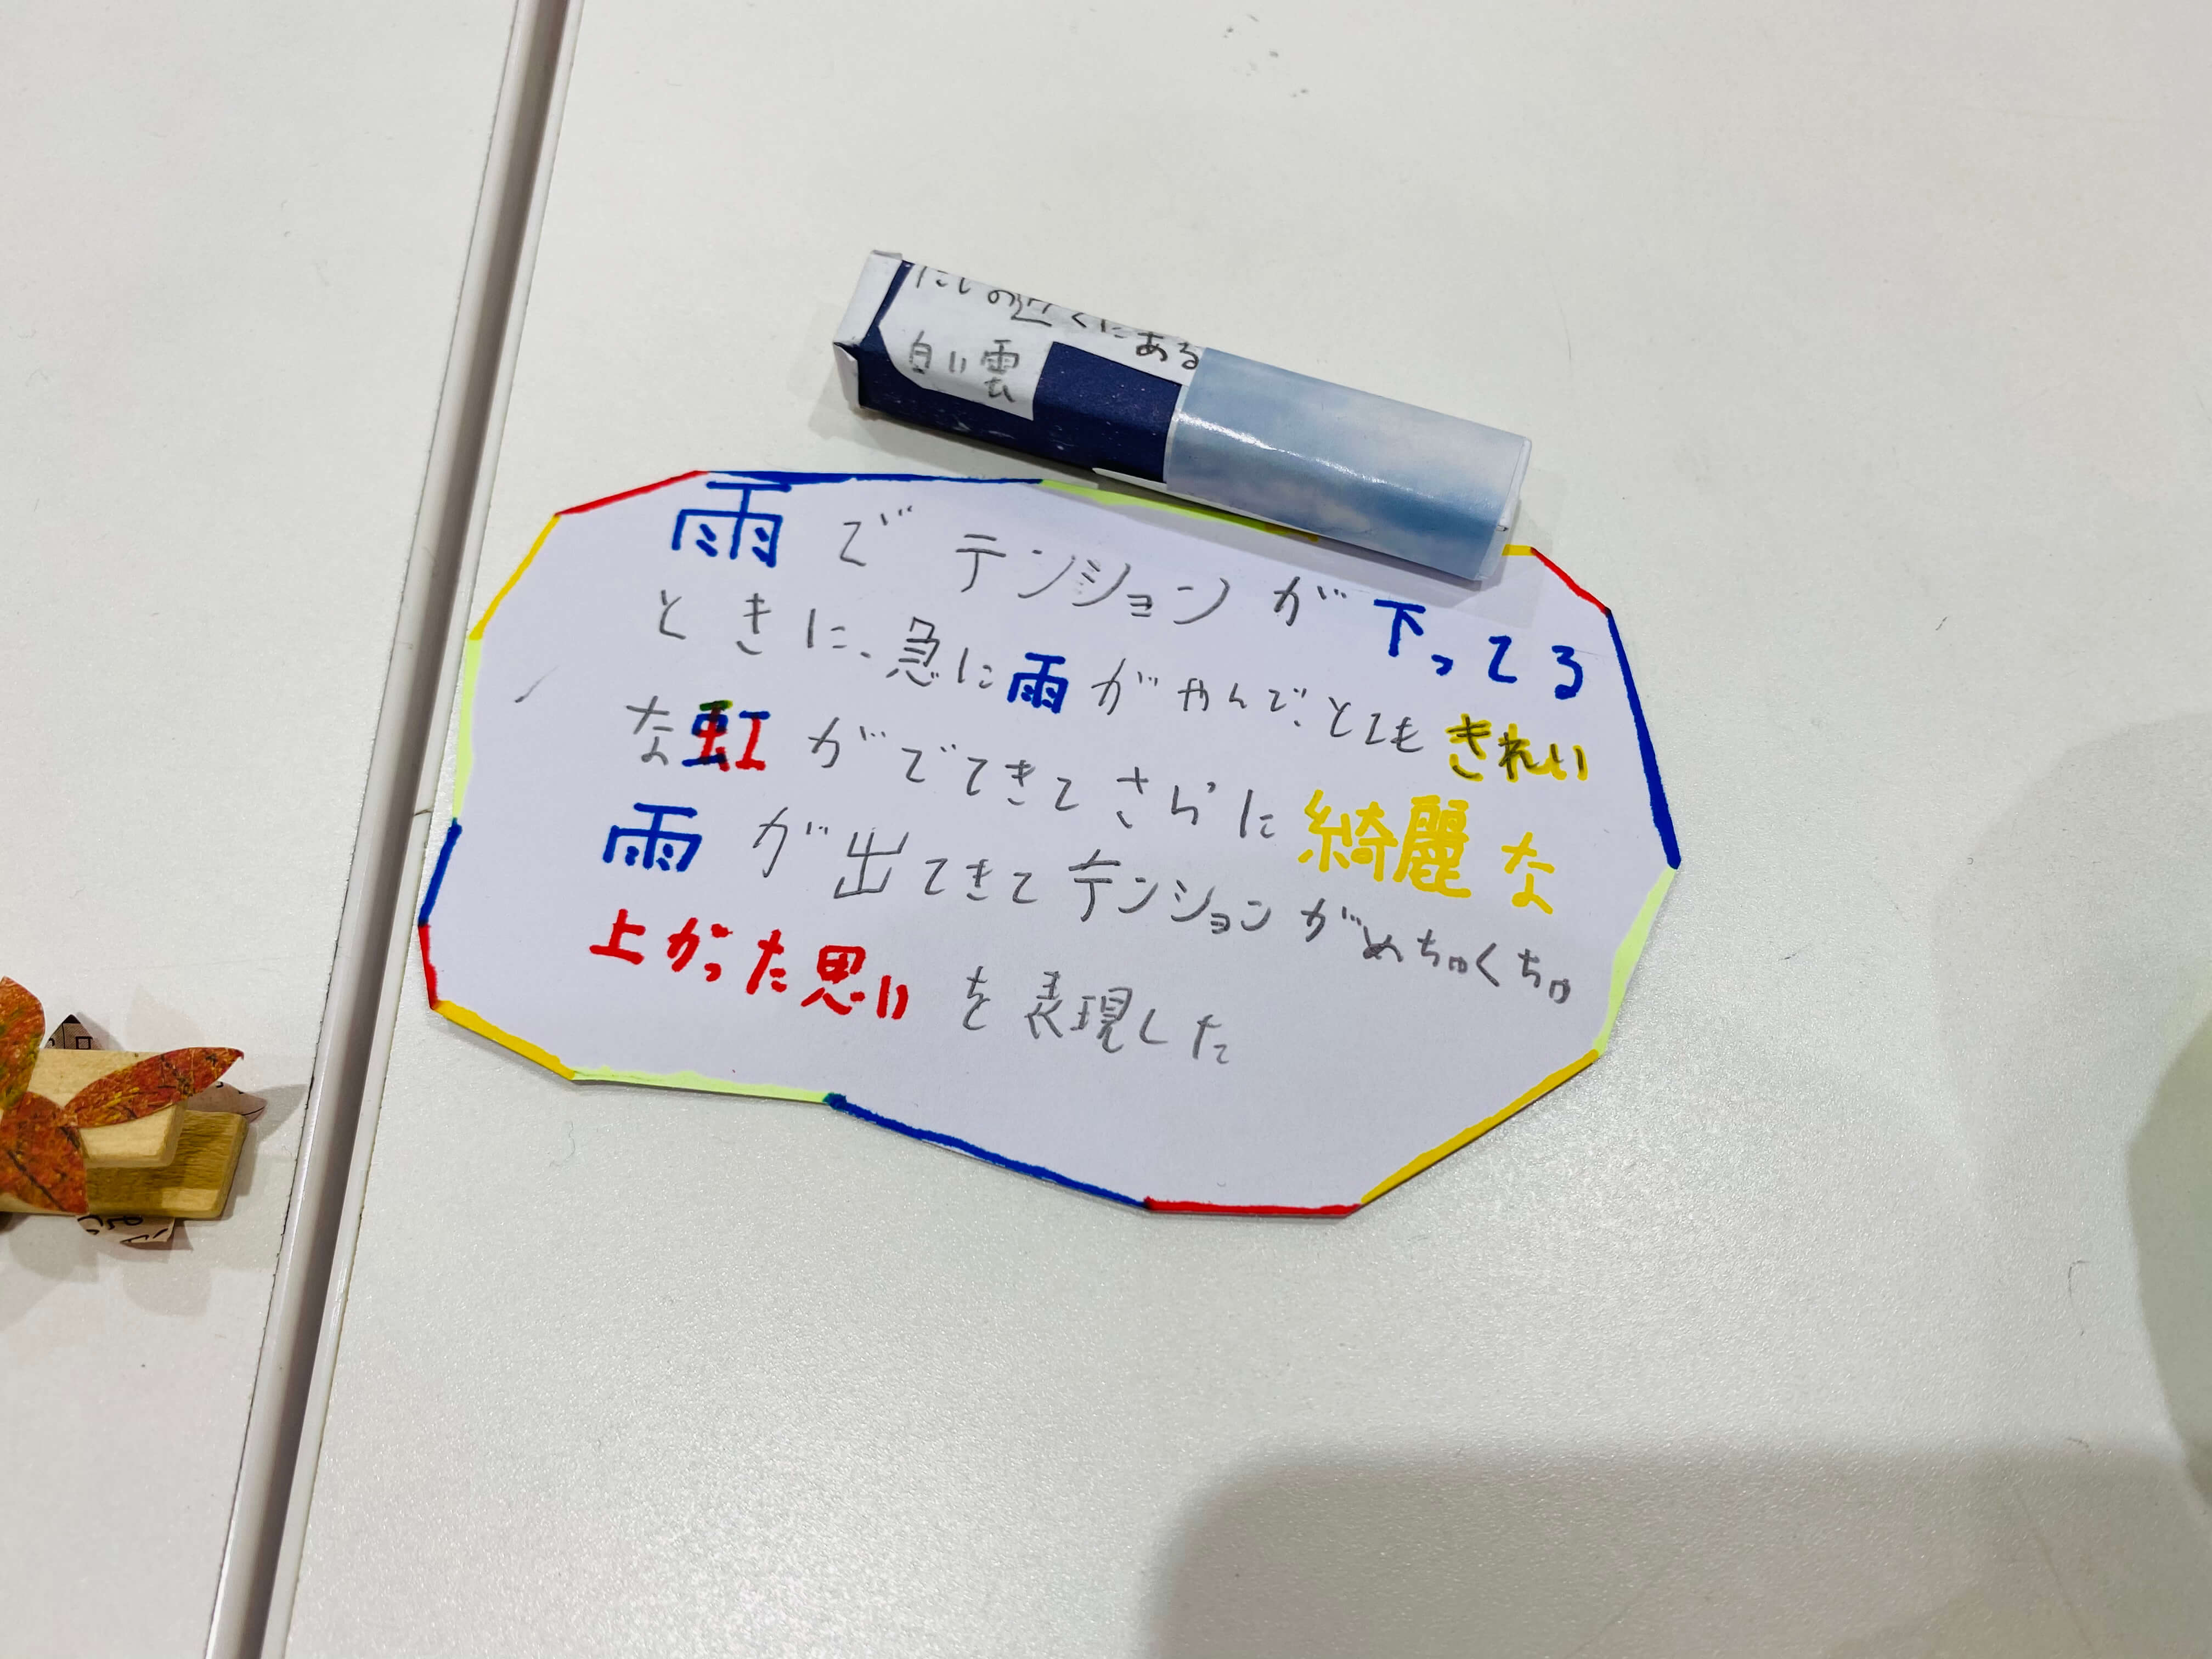 たしの近くにある
白い雲
雨でテンションが下ってる
ときに、急に雨がやんで、とてもきれい
な虹がでてきてさらに綺麗な
雨が出てきてテンションがめちゅくちゅ
上がった思いを表現した